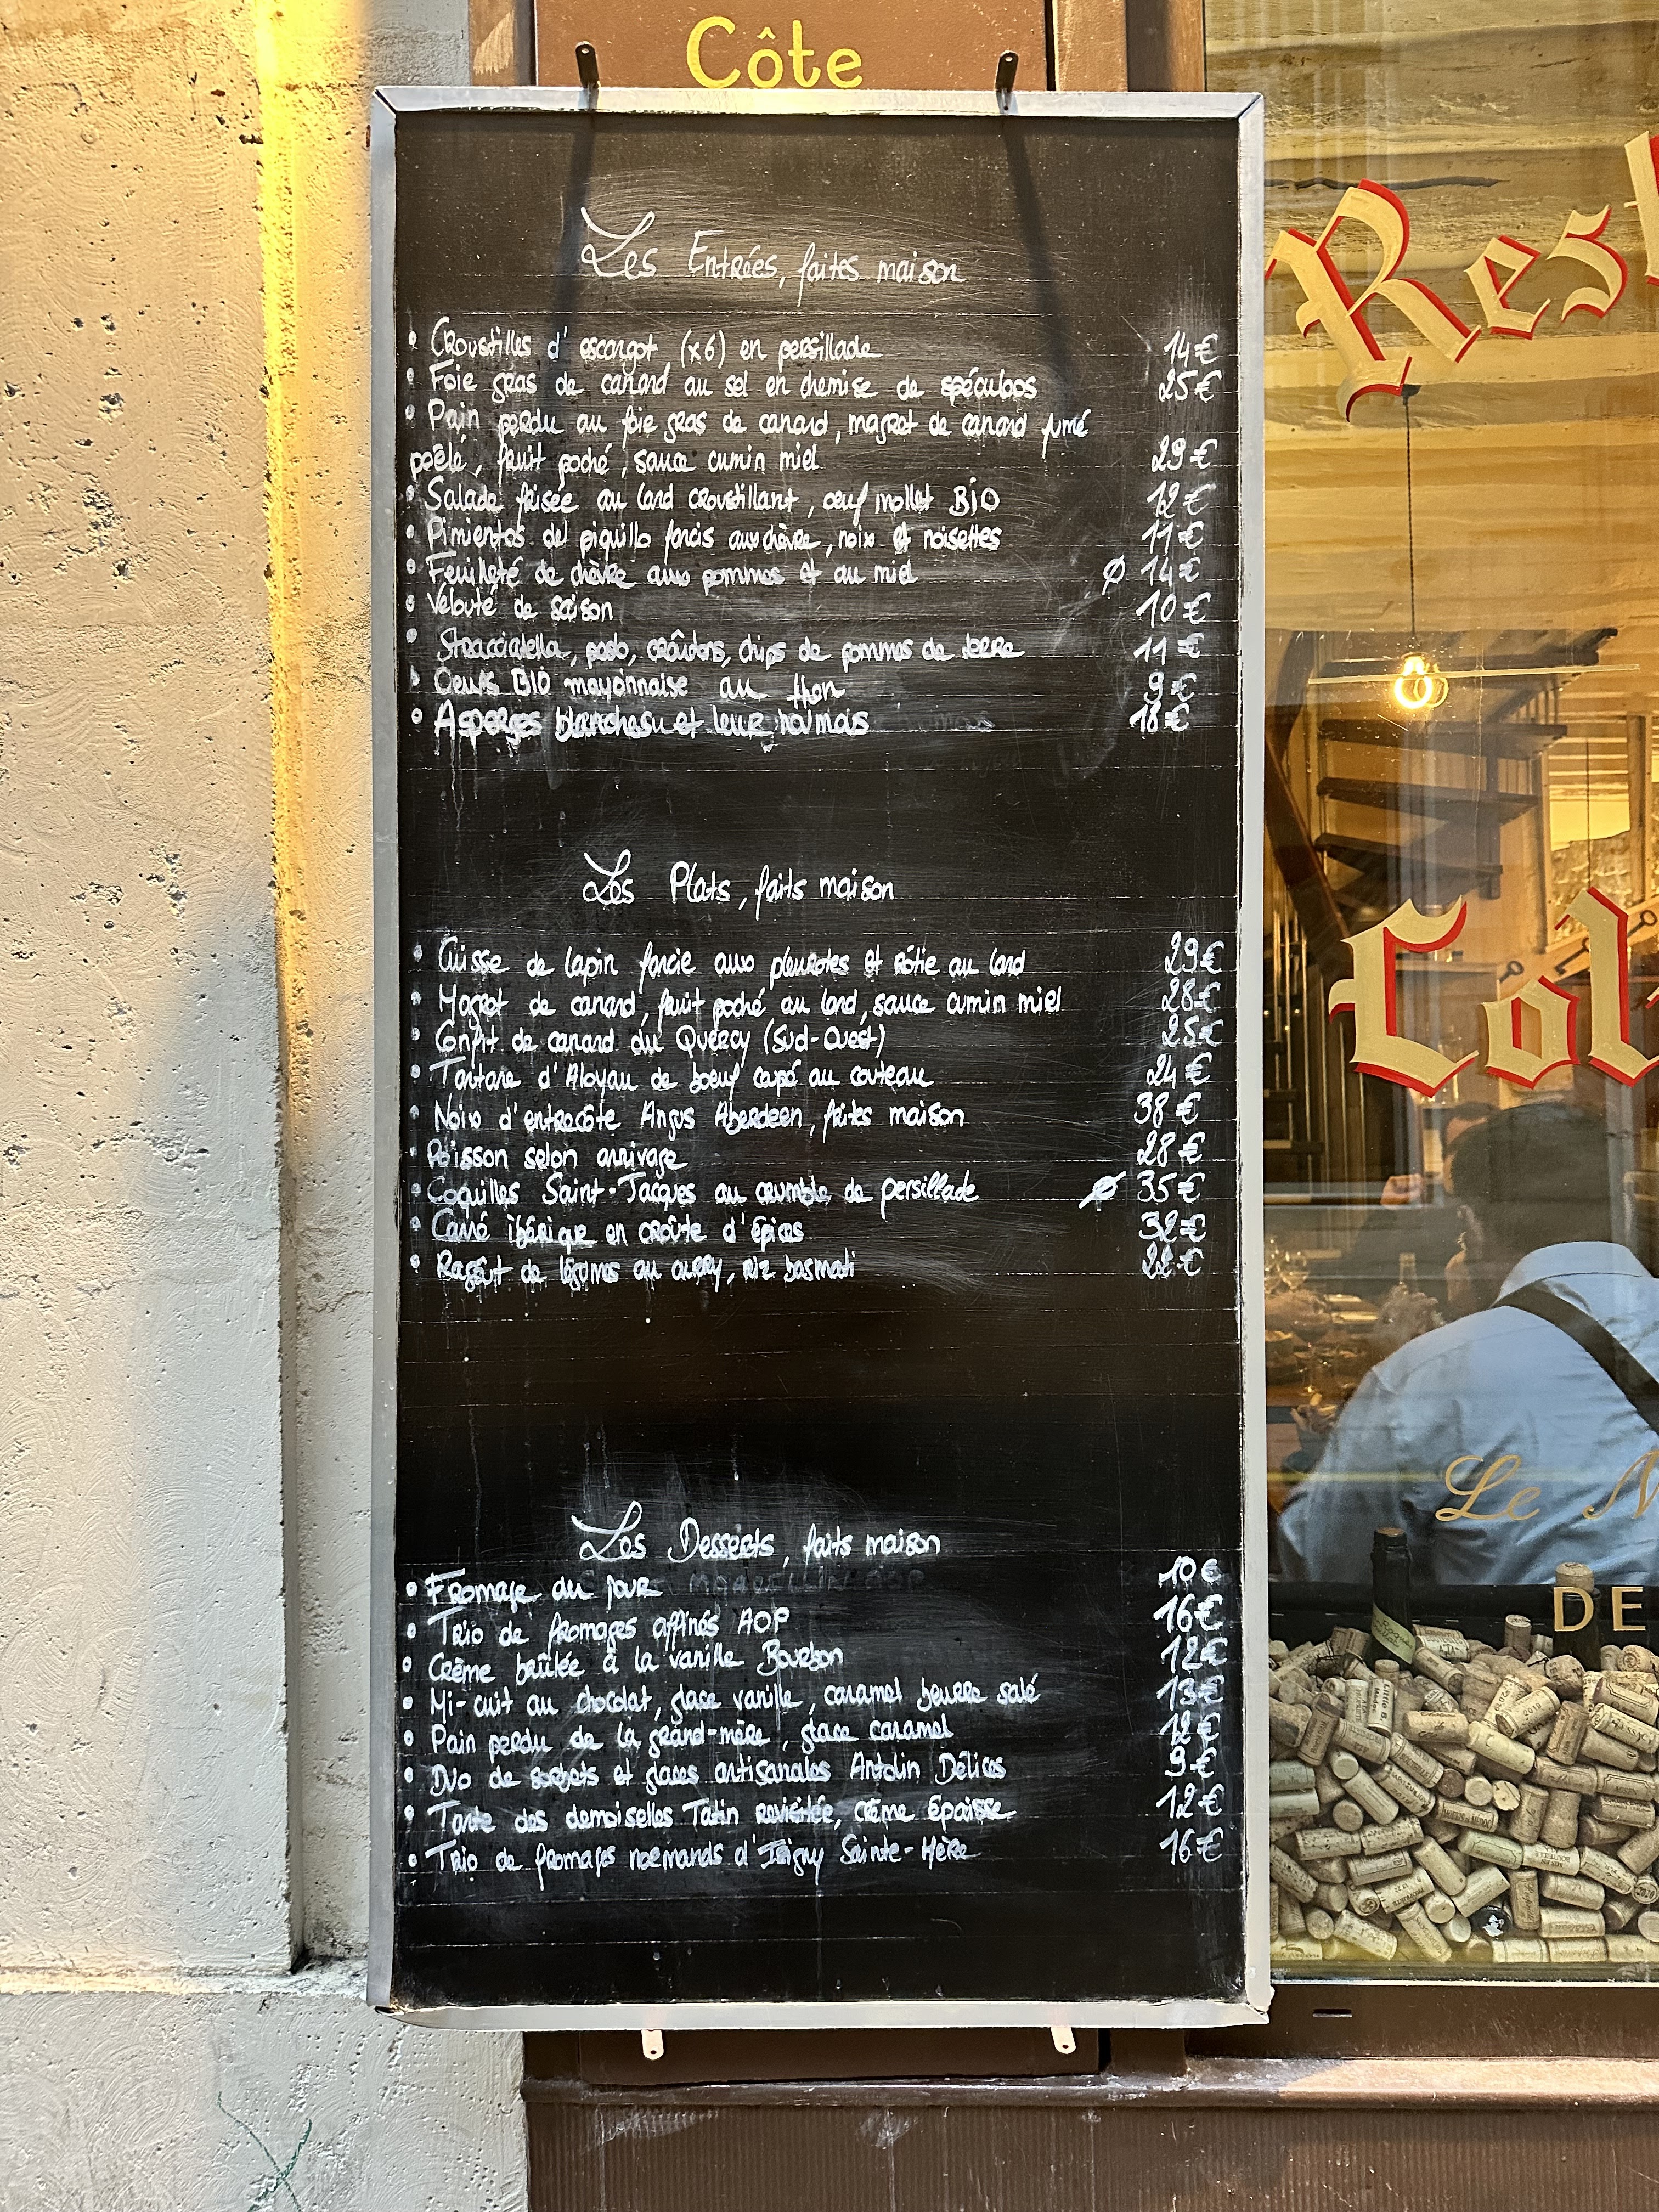 Côte
Les Entrées, faites maison
• Croustilles d'escargot (x6) en persillade 14€
• Foie gras de canard au sel en chemise de spéculoos 25€
• Pain perdu au foie gras de canard, magret de canard fumé
poêlé, fruit poché, sauce cumin miel 29€
• Salade frisée au lard croustillant, oeuf mollet BIO 12€
• Pimientos del piquillo farcis aux chèvre, noix et noisettes 11€
• Feuilleté de chèvre aux pommes et au miel Ø 14€
• Velouté de saison 10€
• Stracciatella, pesto, croûtons, chips de pommes de terre 11€
• Oeufs BIO mayonnaise au thon 9€
• Asperges blanches et leur 18€
Les Plats, faits maison
• Cuisse de lapin farcie aux pleurotes et rôtie au lard 29€
• Magret de canard, fruit poché au lard, sauce cumin miel 28€
• Confit de canard du Quercy (Sud-Ouest) 25€
• Tartare d'Aloyau de boeuf capé au couteau 24€
• Noix d'entrecôte Angus Aberdeen, frites maison 38€
• Poisson selon arrivage 28€
• Coquilles Saint-Jacques au crumble de persillade Ø 35€
• Carré ibérique en croûte d'épices 32€
• Ragoût de légumes au curry, riz basmati 22€
Les Desserts, faits maison
• Fromage du jour 10€
• Trio de fromages affinés AOP 16€
• Crème brûlée à la vanille Bourbon 12€
• Mi-cuit au chocolat, glace vanille, caramel beurre salé 13€
• Pain perdu de la grand-mère, glace caramel 12€
• Duo de sorbets et glaces artisanales Antolin Délices 9€
• Tarte des demoiselles Tatin revisitée, crème épaisse 12€
• Trio de fromages normands d'Isigny Sainte-Mère 16€
Rest
Col
Le
DE